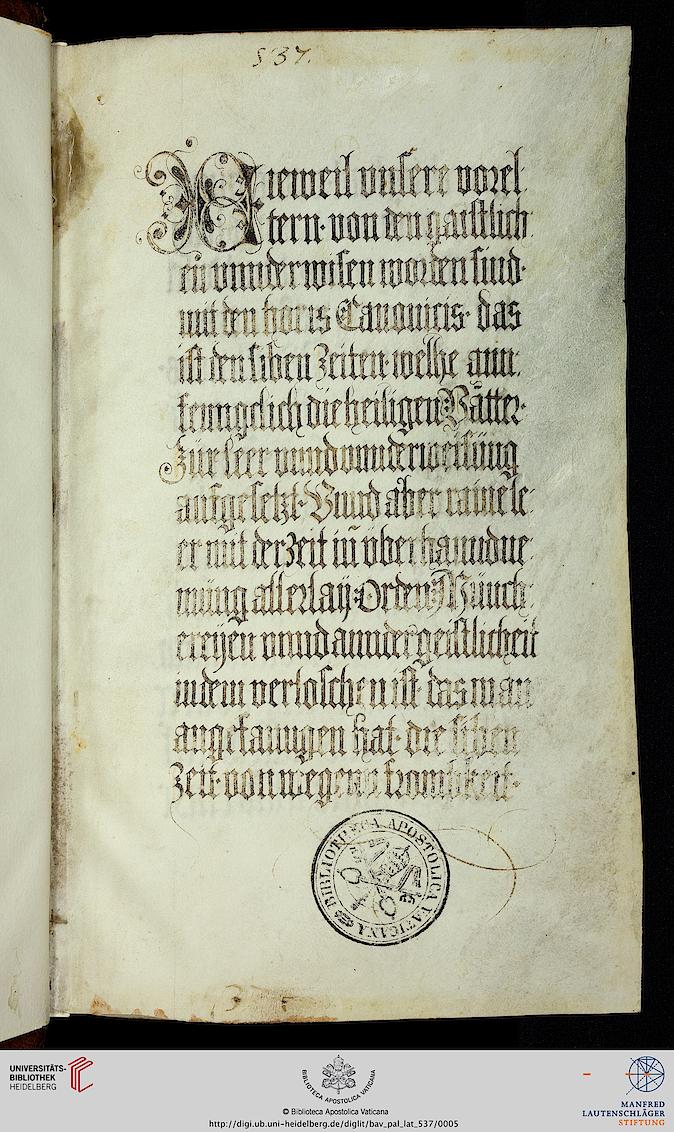 537.
Dieweil vnsere vorel
tern· von den gaistlich
en vnnderwisen worden sind·
mit den horis Canonicis· das
ist den siben Zeiten· welhe ann:
fenngclich die heiligen Vätter·
Zür leer vnnd vnnderweisüng
aufgesetzt· Vnnd aber raine le:
er mit der Zeit in vberhanndne:
müng allerlaÿ· Orden· Münch:
ereÿen vnnd annder geistlicheit
indem verloschen ist· das man
angefanngen hat· die siben
Zeit· von wegen frombkeit·
BIBLIOTHECA APOSTOLICA VATICANA
UNIVERSITÄTS-
BIBLIOTHEK
HEIDELBERG
BIBLIOTECA APOSTOLICA VATICANA
© Biblioteca Apostolica Vaticana
http://digi.ub.uni-heidelberg.de/diglit/bav_pal_lat_537/0005
MANFRED
LAUTENSCHLÄGER
STIFTUNG